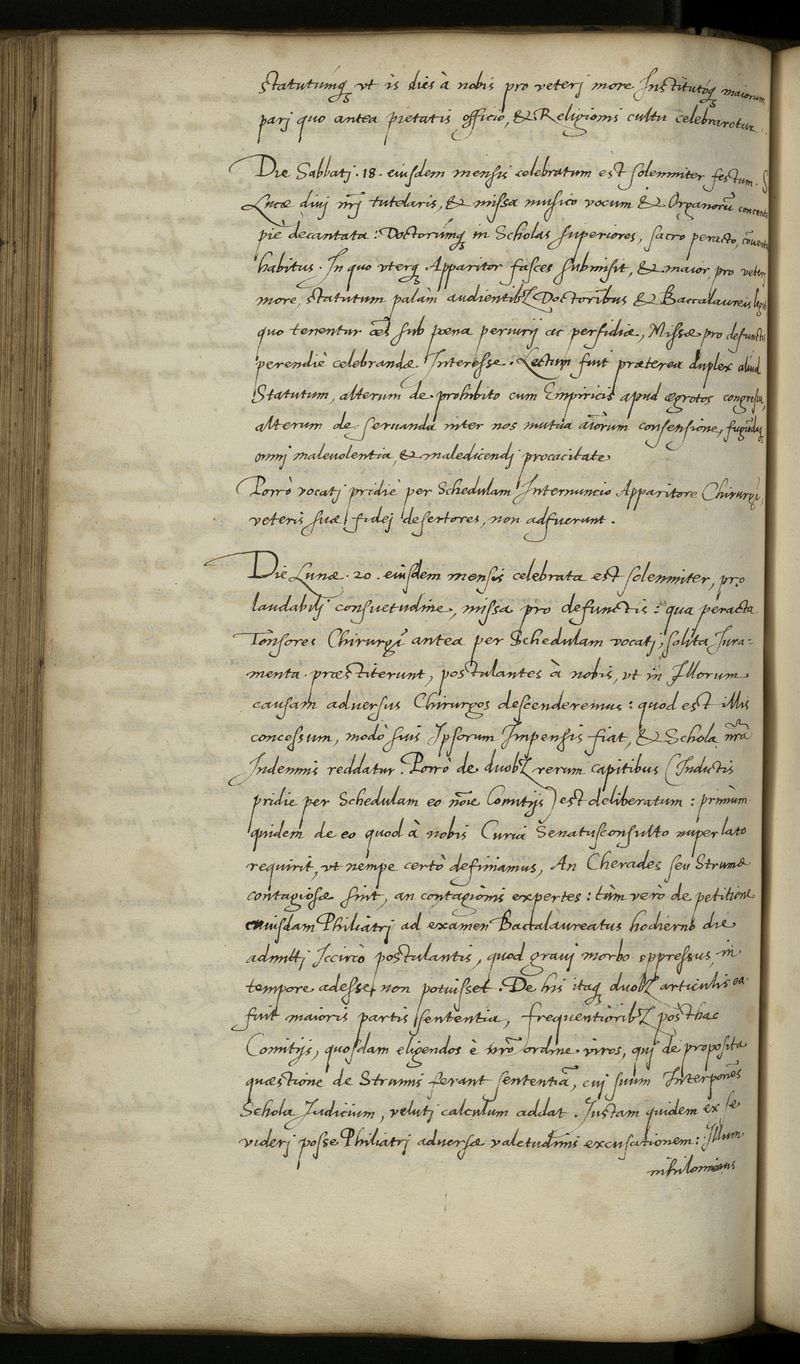 statutumq́ vt is dies à nobis pro veterj more Institutoq́ maiorum
parj quo antea pietatis officio, & Religionis cultu celebraretur.
Die Sabbatj .18. eiusdem mensis celebratum est solenniter festum S.
Lucæ diuj nr̃j tutelaris, & missa musico vocum & Organorũ concentu
piè decantata: Doctorúmq in Scholas superiores, sacro peracto, cõuentus
habitus. In quo vterq Apparitor fasces submisit, & maior pro veterj
more, statutum palàm audientibꝫ Doctoribus & Baccalaureis legit
quo tenentur oẽs sub pœna periurij ac perfidiæ, Missæ pro defunctis
perendiè celebrandæ Interesse. Lectum fuit præterea duplex aliud
Statutum, alterum de prohibito cum Empiricis apud ægrotos congressu,
alterum de seruanda inter nos mutua aĩorum consensione, fugiendaq
omnj maleuolentia, & maledicendj procacitate
Porrò vocatj pridiè per Schedulam Internuncio Apparitore Chirurgj,
veteris suæ fidej desertores, non adfuerunt.
Die Lunæ .20. eiusdem mensis celebrata est solenniter, pro
laudabilj consuetudine, missa pro defunctis: qua peracta
Tonsores Chirurgj antea per Schedulam vocatj, solita Jura-
menta præstiterunt, postulantes à nobis, vt in Illorum
causam aduersus Chirurgos descenderemus: quod est illis
concessum, modò suis Ipsorum Impensis fiat, & Schola nr̃a
Indemnis reddatur. Porrò de duobꝫ rerum capitibus (Indictis
pridie per Schedulam eo noĩe Comitijs) est deliberatum: primùm
quidem de eo quod à nobis Curia Senatusconsulto nuper lato
requirit, vt nempe certò definiamus, An Cherades seu Strumæ
contagiosæ sint, an contagionis expertes: tùm verò de petitione
cuiusdam Philiatrj ad examen Baccalaureatus hodierno die
admittj Iccircò postulantis, quod grauj morbo oppressus, in
tempore adesse non potuisset. De his itaq duobꝫ articulis ea
fuit maioris partis sententia, frequentioribꝫ posthac
Comitijs, quosdam eligendos è nr̃o ordine viros, quj de proposita
quæstione de Strumis ferant sententiã, cuj suum Interponẽs
Schola Iudicium, veluti calculum addat. Iustam quidem ex se
viderj posse Philiatrj aduersæ valetudinis excusationem: Illum
nihilominus